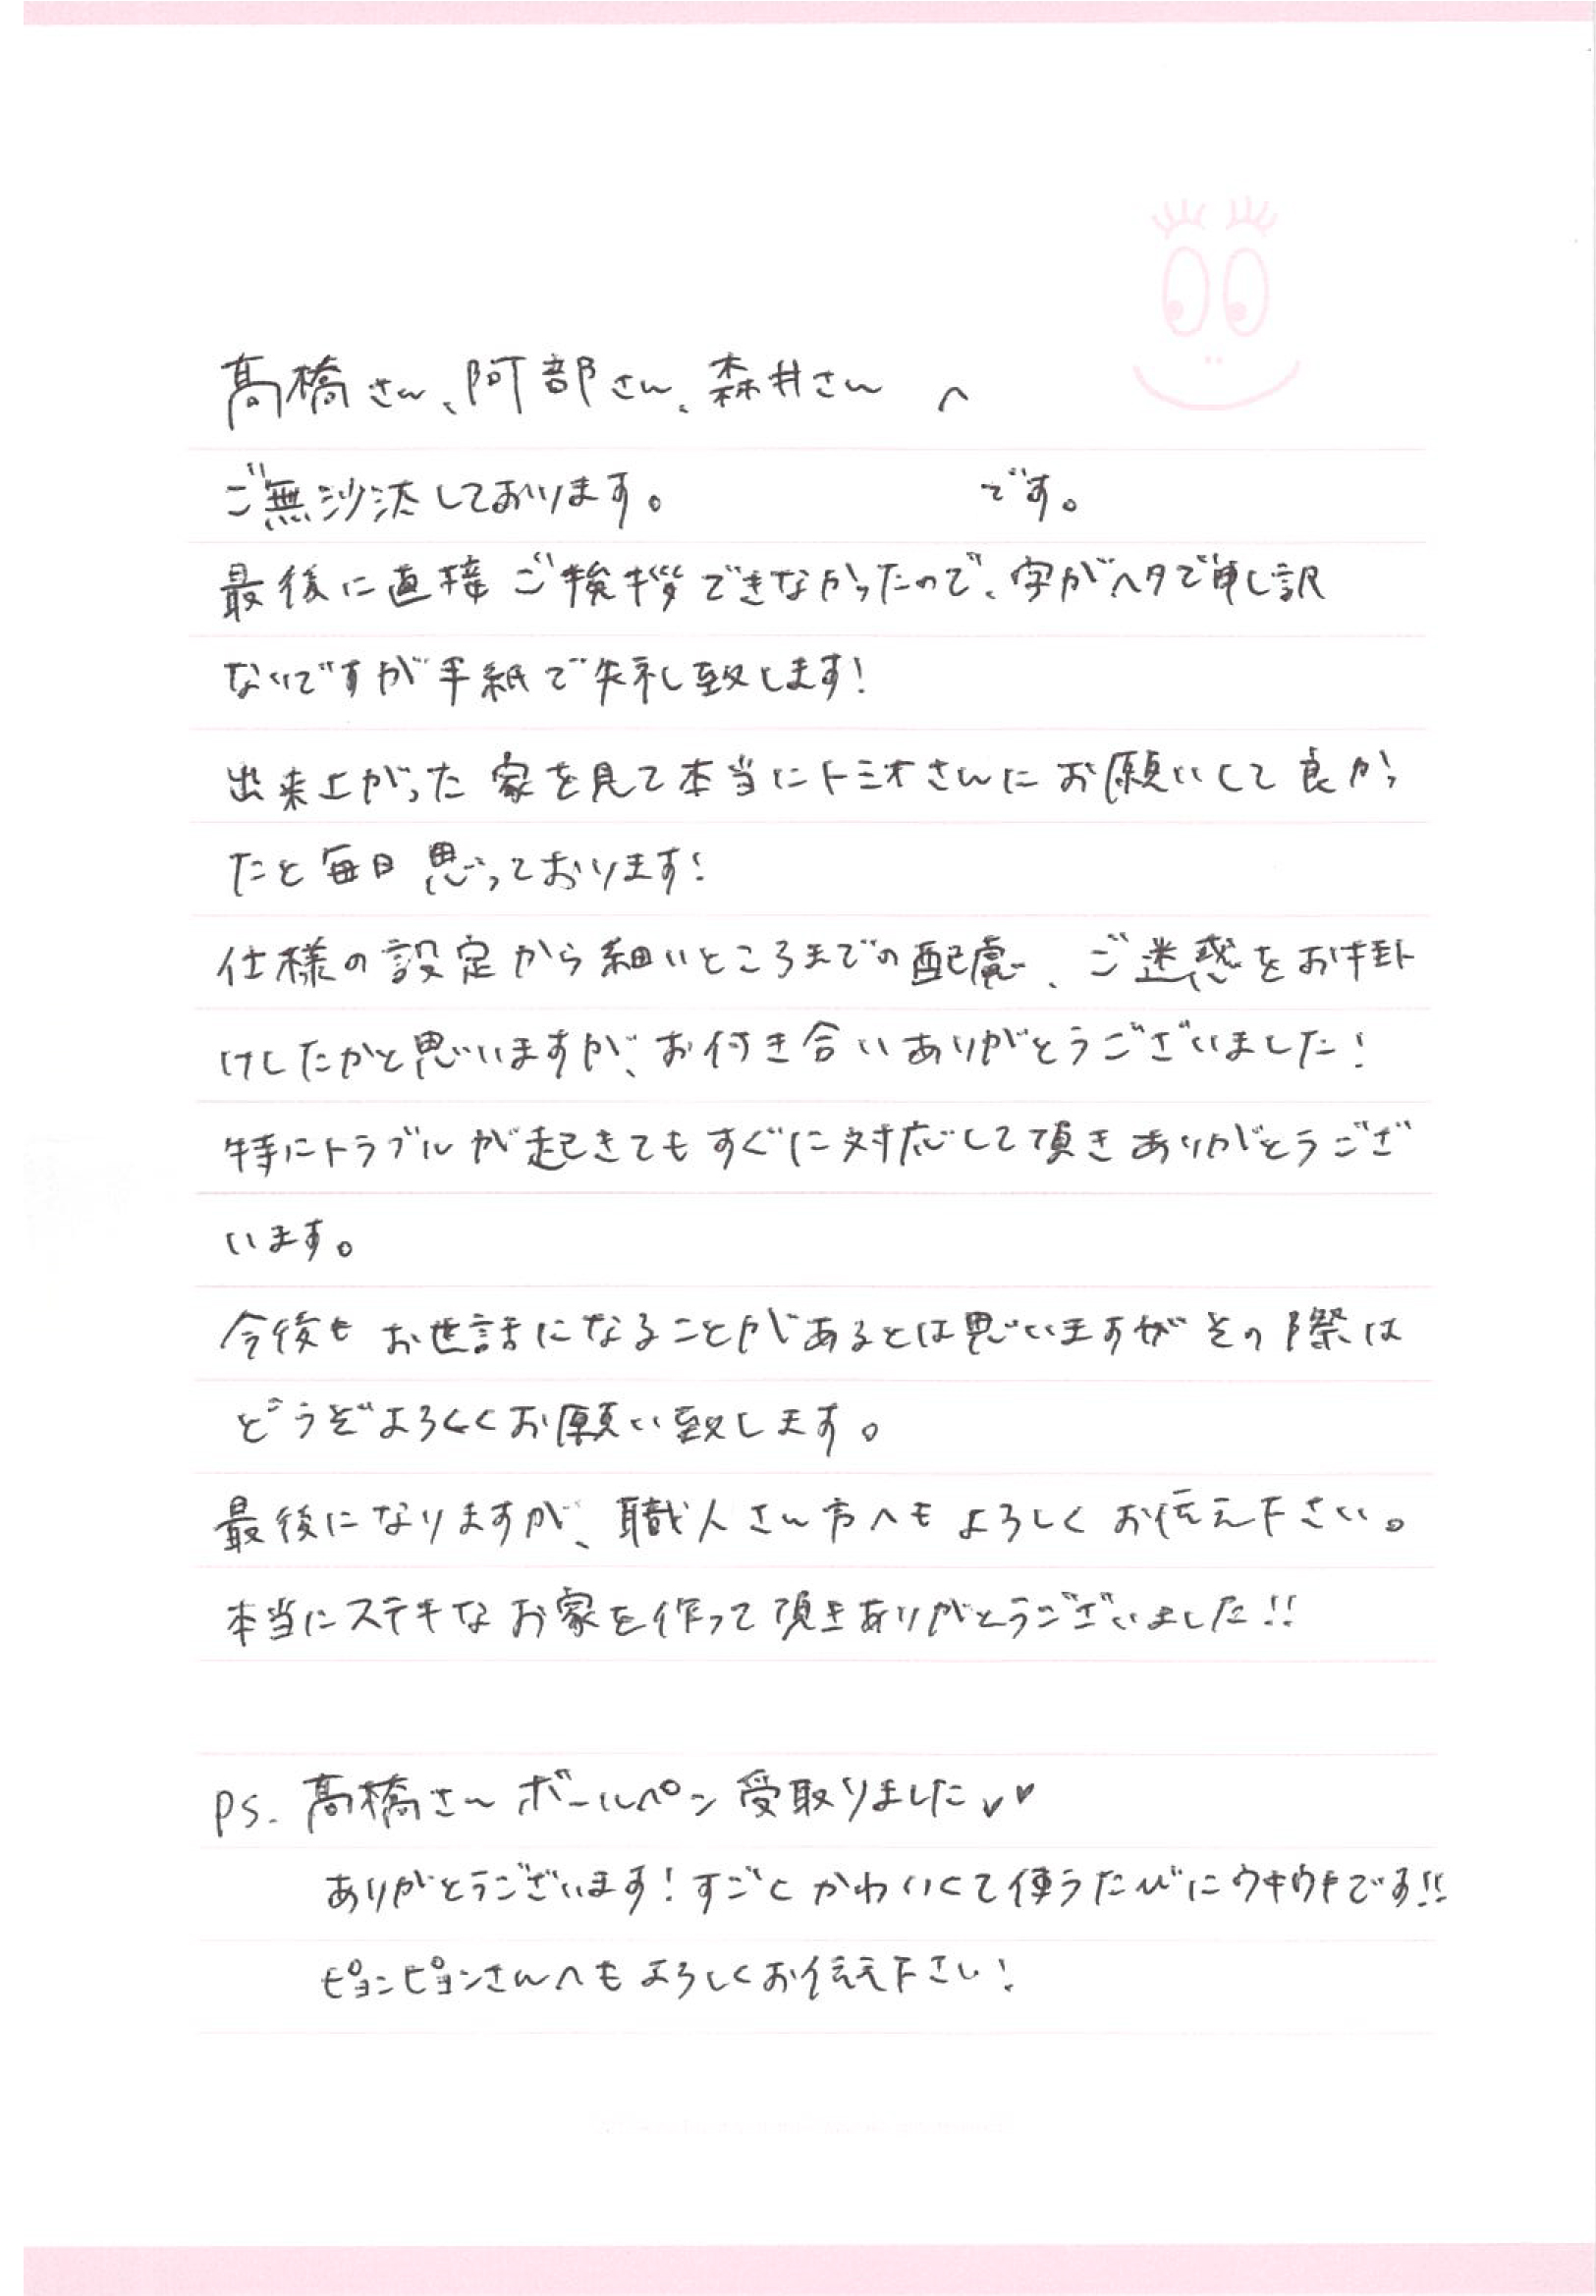 髙橋さん、阿部さん、森井さん へ
ご無沙汰しております。 です。
最後に直接ご挨拶できなかったので、字がヘタで申し訳
ないですが手紙で失礼致します!
出来上がった家を見て本当にトミオさんにお願いして良かっ
たと毎日思っております!
仕様の設定から細いところまでの配慮、ご迷惑をお掛
けしたかと思いますが、お付き合いありがとうございました!
特にトラブルが起きてもすぐに対応して頂きありがとうござ
います。
今後もお世話になることがあるとは思いますがその際は
どうぞよろしくお願い致します。
最後になりますが、職人さん方へもよろしくお伝え下さい。
本当にステキなお家を作って頂きありがとうございました!!
PS. 髙橋さんボールペン受取りました♥♥
ありがとうございます!すごくかわいくて使うたびにウキウキです!!
ピョンピョンさんへもよろしくお伝え下さい!